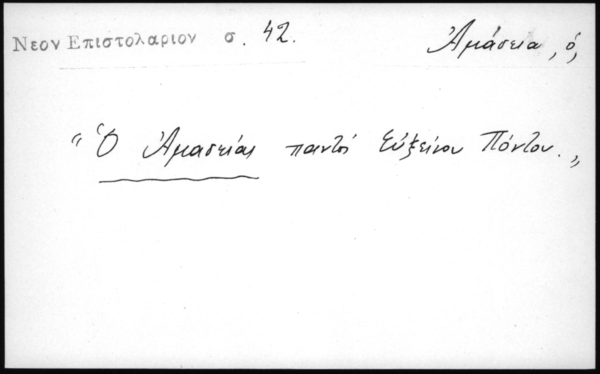 Νεον Επιστολαριον σ. 42. Ἀμάσεια, ὁ,
“Ὁ Ἀμασείας παντὸς Εὐξείνου Πόντου.„